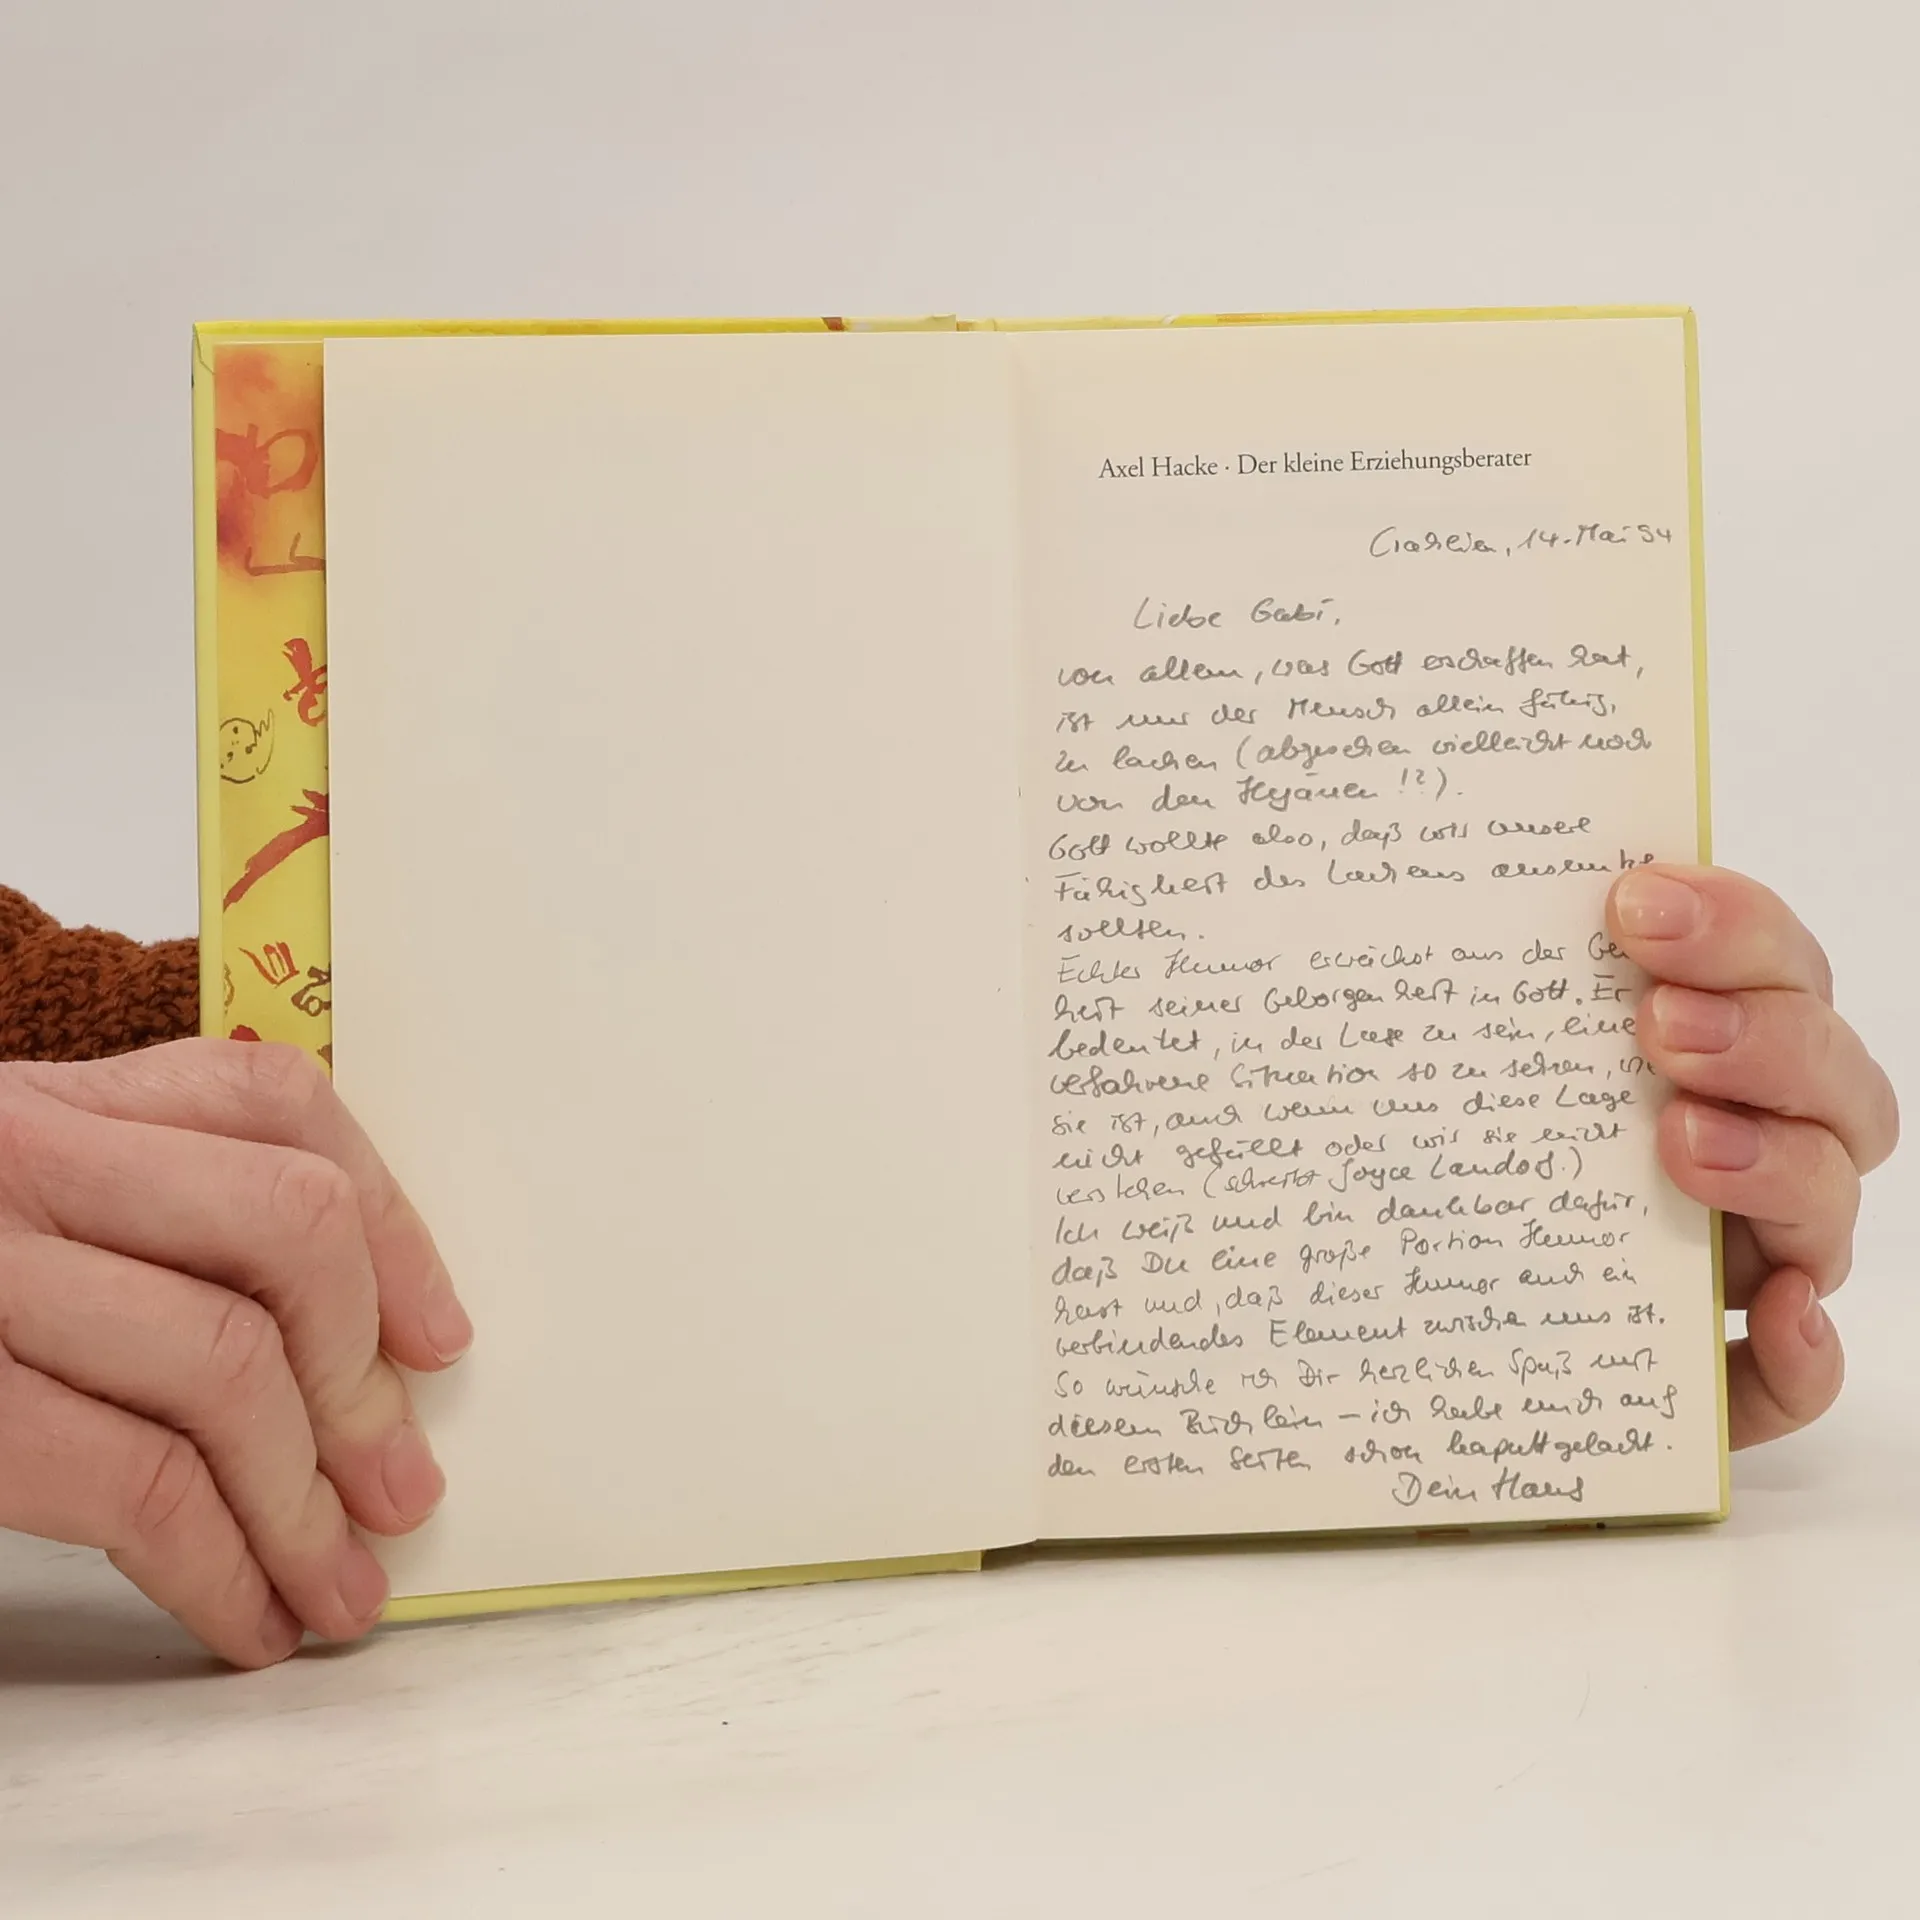 Axel Hacke · Der kleine Erziehungsberater
14. Mai 94
Liebe Gabi,
von allem, was Gott erschaffen hat,
ist nur der Mensch allein fähig,
zu lachen (abgesehen vielleicht noch
von den Hyänen !?).
Gott wollte also, daß wir unsere
Fähigkeit des Lachens
sollten.
Echter Humor erwächst aus der
heit seiner Geborgenheit in Gott. Er
bedeutet, in der Lage zu sein, eine
verfahrene Situation so zu sehen,
sie ist, auch wenn uns diese Lage
nicht gefällt oder wir sie nicht
verstehen (schreibt Joyce Landorf.)
Ich weiß und bin dankbar dafür,
daß Du eine große Portion Humor
hast und, daß dieser Humor auch ein
verbindendes Element zwischen uns ist.
So wünsche ich Dir herzlichen Spaß mit
diesem Büchlein – ich habe mich auf
den ersten Seiten schon kaputtgelacht.
Dein Hans